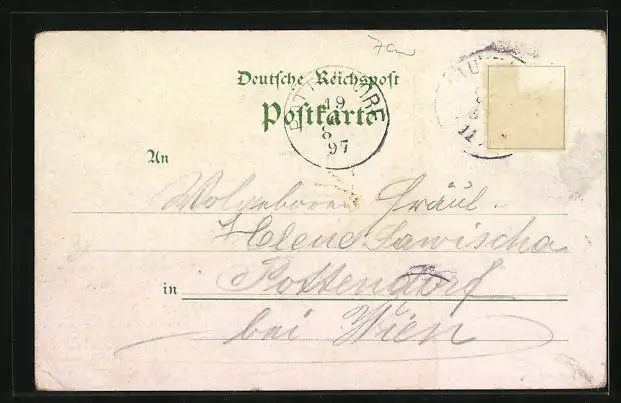 Deutsche Reichspost
Postkarte
19
8
97
An
Wolgeboren Fräul.
Helene Lawischa
in Pottendorf
bei Wien